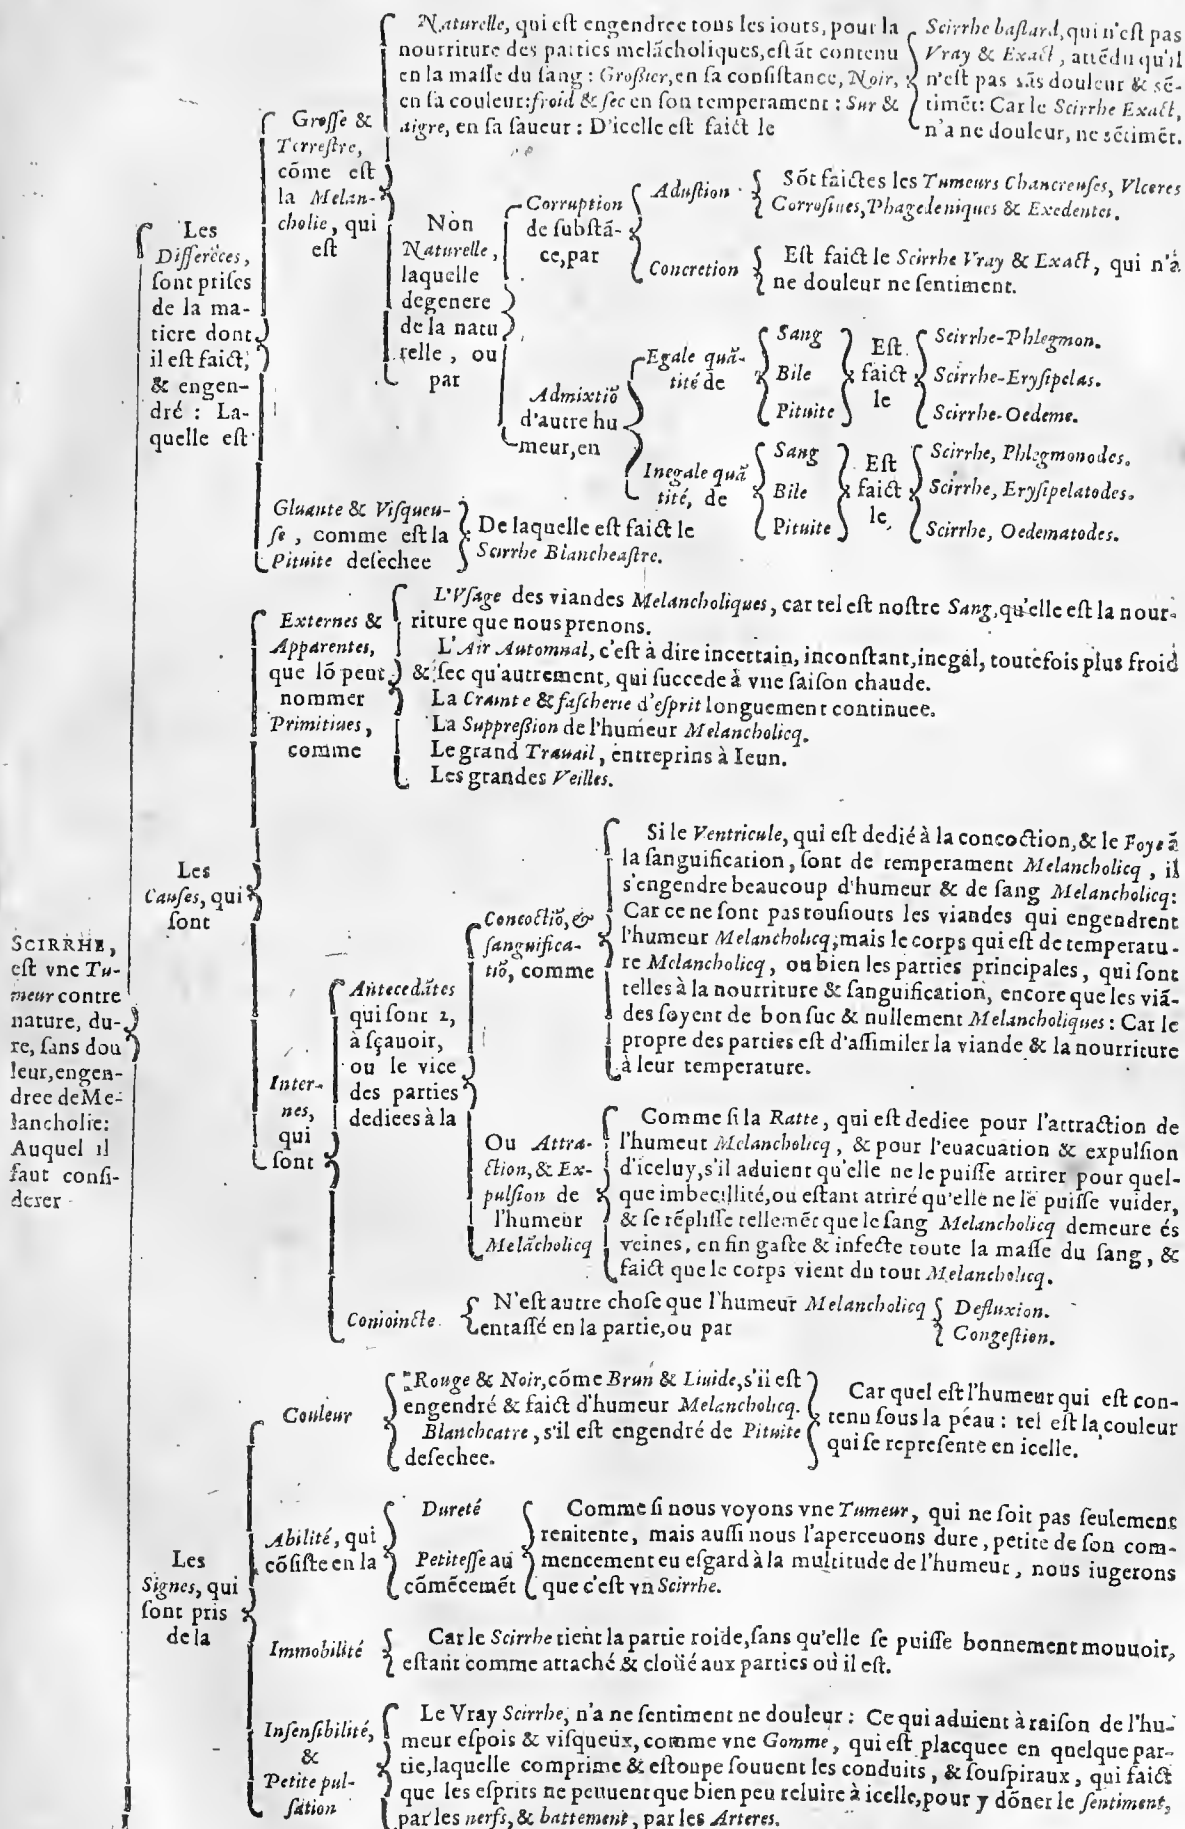 SCIRRHE,
eſt vne Tu-
meur contre
nature, du-
re, ſans dou
leur, engen-
dree de Me-
lancholie:
Auquel il
faut conſi-
derer
Les
Differẽces,
ſont priſes
de la ma-
tiere dont
il eſt faict,
& engen-
dré : La-
quelle eſt
Groſſe &
Terreſtre,
cõme eſt
la Melan-
cholie, qui
eſt
Naturelle, qui eſt engendree tous les iours, pour la
nourriture des parties melãcholiques, eſtãt contenu
en la maſſe du ſang : Groſsier, en ſa conſiſtance, Noir,
en ſa couleur: froid & ſec en ſon temperament : Sur &
aigre, en ſa ſaueur : D'icelle eſt faict le
Scirrhe baſtard, qui n'eſt pas
Vray & Exact, attẽdu qu'il
n'eſt pas sãs douleur & sẽ-
timẽt: Car le Scirrhe Exact,
n'a ne douleur, ne sẽtimẽt.
Non
Naturelle,
laquelle
degenere
de la natu
relle, ou
par
Corruption
de ſubſtã-
ce, par
Aduſtion
Sõt faictes les Tumeurs Chancreuſes, Vlceres
Corroſiues, Phagedeniques & Exedentes.
Concretion
Eſt faict le Scirrhe Vray & Exact, qui n'a
ne douleur ne ſentiment.
Admixtiõ
d'autre hu
meur, en
Egale quã-
tité de
Sang
Bile
Pituite
Eſt
faict
le
Scirrhe-Phlegmon.
Scirrhe-Eryſipelas.
Scirrhe-Oedeme.
Inegale quã
tité, de
Sang
Bile
Pituite
Eſt
faict
le,
Scirrhe, Phlegmonodes.
Scirrhe, Eryſipelatodes.
Scirrhe, Oedematodes.
Gluante & Viſqueu-
ſe, comme eſt la
Pituite deſechee
De laquelle eſt faict le
Scirrhe Blancheaſtre.
Les
Cauſes, qui
ſont
Externes &
Apparentes,
que lõ peut
nommer
Primitiues,
comme
L'Vſage des viandes Melancholiques, car tel eſt noſtre Sang, qu'elle eſt la nour-
riture que nous prenons.
L'Air Automnal, c'eſt à dire incertain, inconſtant, inegal, toutefois plus froid
& ſec qu'autrement, qui ſuccede à vne ſaiſon chaude.
La Crainte & faſcherie d'eſprit longuement continuee.
La Suppreſsion de l'humeur Melancholicq.
Le grand Trauail, entreprins à Ieun.
Les grandes Veilles.
Inter-
nes,
qui
ſont
Antecedãtes
qui ſont 2,
à ſçauoir,
ou le vice
des parties
dediees à la
Concoctiõ, &
ſanguifica-
tiõ, comme
Si le Ventricule, qui eſt dedié à la concoction, & le Foye à
la ſanguification, ſont de temperament Melancholicq, il
s'engendre beaucoup d'humeur & de ſang Melancholicq:
Car ce ne ſont pas touſiours les viandes qui engendrent
l'humeur Melancholicq, mais le corps qui eſt de temperatu-
re Melancholicq, ou bien les parties principales, qui ſont
telles à la nourriture & ſanguification, encore que les viã-
des ſoyent de bon ſuc & nullement Melancholiques : Car le
propre des parties eſt d'aſſimiler la viande & la nourriture
à leur temperature.
Ou Attra-
ction, & Ex-
pulſion de
l'humeur
Melãcholicq
Comme ſi la Ratte, qui eſt dediee pour l'attraction de
l'humeur Melancholicq, & pour l'euacuation & expulſion
d'iceluy, s'il aduient qu'elle ne le puiſſe attirer pour quel-
que imbecillité, ou eſtant attiré qu'elle ne le puiſſe vuider,
& ſe rẽpliſſe tellemẽt que le ſang Melancholicq demeure és
veines, en fin gaſte & infecte toute la maſſe du ſang, &
faict que le corps vient du tout Melancholicq.
Conioincte
N'eſt autre choſe que l'humeur Melancholicq
entaſſé en la partie, ou par
Defluxion.
Congeſtion.
Les
Signes, qui
ſont pris
de la
Couleur
Rouge & Noir, cõme Brun & Liuide, s'il eſt
engendré & faict d'humeur Melancholicq.
Blancheatre, s'il eſt engendré de Pituite
deſechee.
Car quel eſt l'humeur qui eſt con-
tenu ſous la peau : tel eſt la couleur
qui ſe repreſente en icelle.
Abilité, qui
cõſiſte en la
Dureté
Petiteſſe au
cõmẽcemẽt
Comme ſi nous voyons vne Tumeur, qui ne ſoit pas ſeulement
renitente, mais auſſi nous l'aperceuons dure, petite de ſon com-
mencement eu eſgard à la multitude de l'humeur, nous iugerons
que c'eſt vn Scirrhe.
Immobilité
Car le Scirrhe tient la partie roide, ſans qu'elle ſe puiſſe bonnement mouuoir,
eſtant comme attaché & cloüé aux parties où il eſt.
Inſenſibilité,
&
Petite pul-
ſation
Le Vray Scirrhe, n'a ne ſentiment ne douleur : Ce qui aduient à raiſon de l'hu-
meur eſpois & viſqueux, comme vne Gomme, qui eſt placquee en quelque par-
tie, laquelle comprime & eſtoupe ſouuent les conduits, & ſouſpiraux, qui faict
que les eſprits ne peuuent que bien peu reluire à icelle, pour y dõner le ſentiment,
par les nerfs, & battement, par les Arteres.